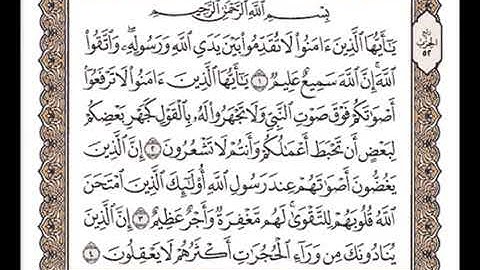 بِسْمِ اللَّهِ الرَّحْمَٰنِ الرَّحِيمِ
يَٰٓأَيُّهَا ٱلَّذِينَ ءَامَنُوا۟ لَا تُقَدِّمُوا۟ بَيْنَ يَدَىِ ٱللَّهِ وَرَسُولِهِۦ ۖ وَٱتَّقُوا۟
ٱللَّهَ ۚ إِنَّ ٱللَّهَ سَمِيعٌ عَلِيمٌ ١ يَٰٓأَيُّهَا ٱلَّذِينَ ءَامَنُوا۟ لَا تَرْفَعُوٓا۟
أَصْوَٰتَكُمْ فَوْقَ صَوْتِ ٱلنَّبِىِّ وَلَا تَجْهَرُوا۟ لَهُۥ بِٱلْقَوْلِ كَجَهْرِ بَعْضِكُمْ
لِبَعْضٍ أَن تَحْبَطَ أَعْمَٰلُكُمْ وَأَنتُمْ لَا تَشْعُرُونَ ٢ إِنَّ ٱلَّذِينَ
يَغُضُّونَ أَصْوَٰتَهُمْ عِندَ رَسُولِ ٱللَّهِ أُو۟لَٰٓئِكَ ٱلَّذِينَ ٱمْتَحَنَ
ٱللَّهُ قُلُوبَهُمْ لِلتَّقْوَىٰ ۚ لَهُم مَّغْفِرَةٌ وَأَجْرٌ عَظِيمٌ ٣ إِنَّ ٱلَّذِينَ
يُنَادُونَكَ مِن وَرَآءِ ٱلْحُجُرَٰتِ أَكْثَرُهُمْ لَا يَعْقِلُونَ ٤